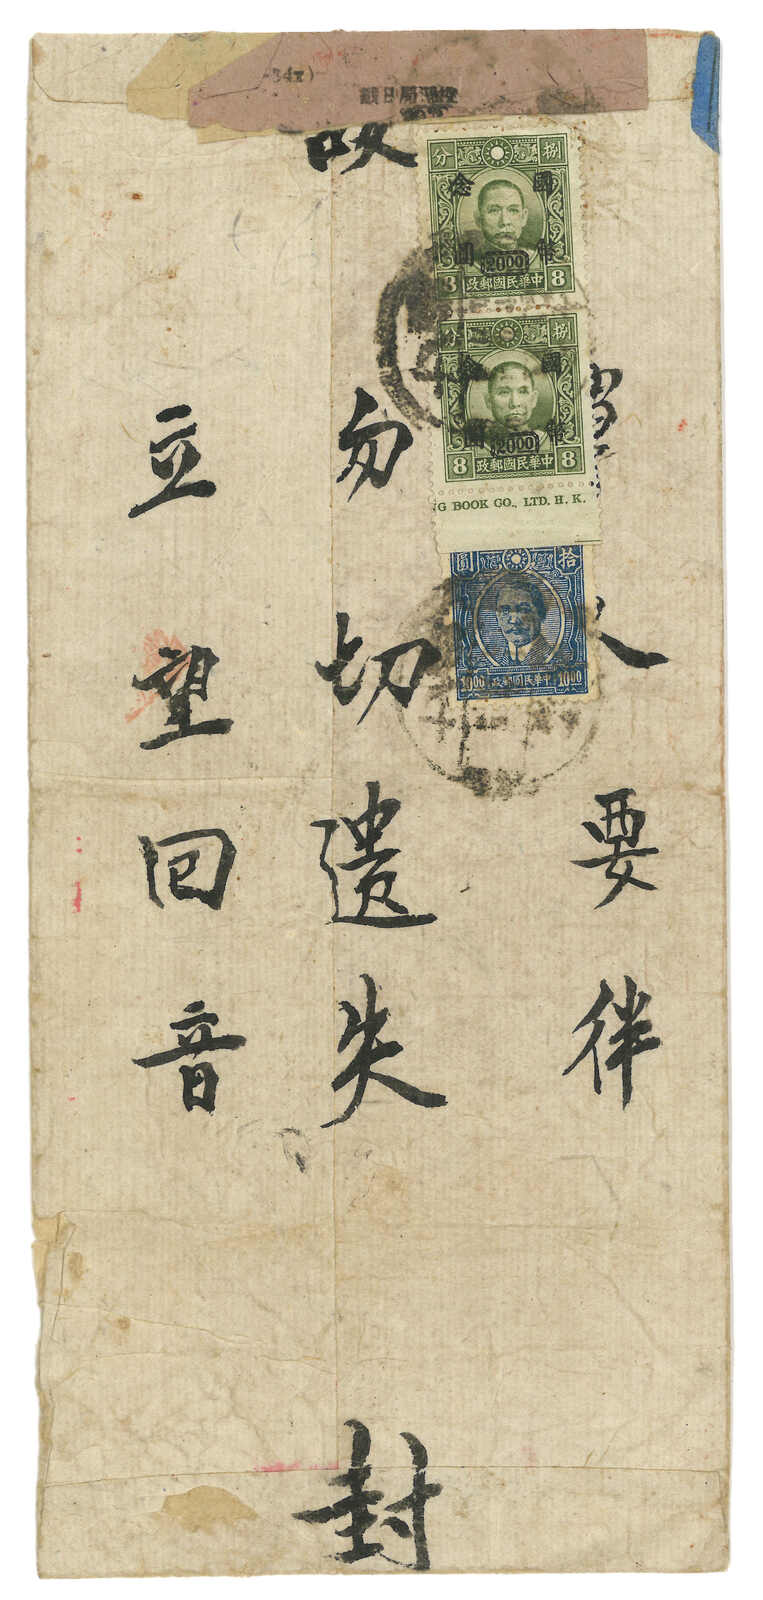 人要件
勿切遺失
立望回音
封
-34x)
分 捌
國幣
念圓
20 00
8 中華民國郵政 8
分 捌
國幣
念圓
20 00
8 中華民國郵政 8
G BOOK CO., LTD. H. K.
圓 拾
10 00 中華民國郵政 10 00